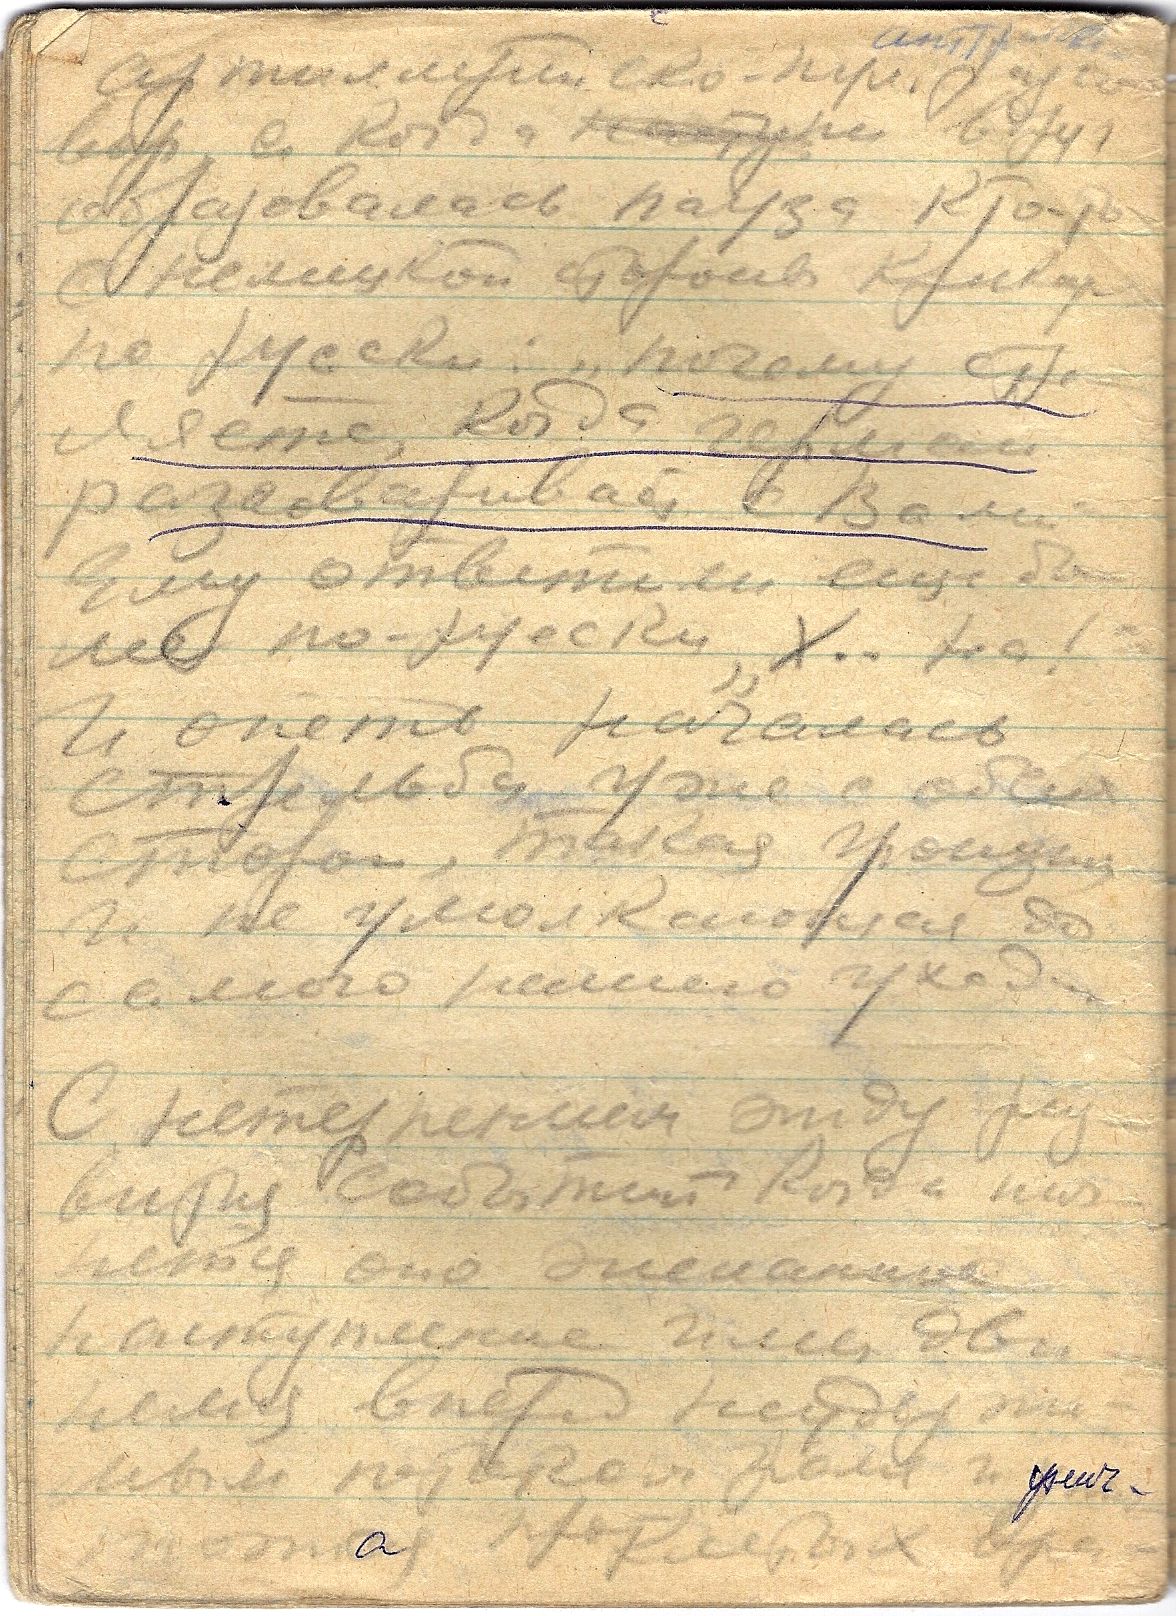 артиллерийско-
вор, а когда в
образовалась пауза кто-то
с немецкой стороны
по русски: „почему стре
ляете, когда
разговаривает с Вами
Ему ответили еще бо
лее по-русски „Х.. на!
И опеть началась
стрельба уже с обеих
сторон, такая
и не умолкающая до
самого нашего ухода
С нетерпением жду раз
вития событий когда нач
нется оно желанное
наступление или дви
немся вперед неудержи-
мым потоком и унич-
тожая